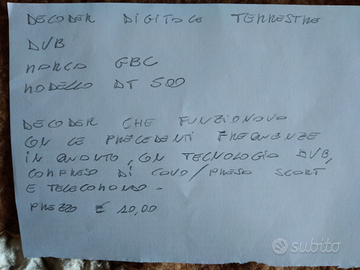 DECODER DIGITALE TERRESTRE
DVB
MARCA GBC
MODELLO DT 500
DECODER CHE FUNZIONAVA
CON LE PRECEDENTI FREQUENZE
IN QUANTO, CON TECNOLOGIA DVB,
COMPRESO DI CAVO/PRESA SCART
E TELECOMANDO -
PREZZO € 10,00
subito